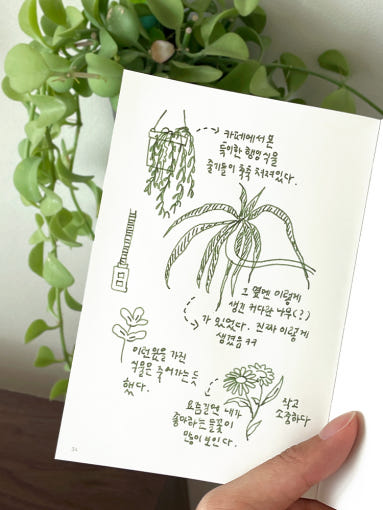 카페에서 본
독특한 행잉식물
줄기들이 축축 쳐져있다.
그 옆엔 이렇게
생긴 커다란 나무(?)
가 있었다. 진짜 이렇게
생겼음 ㅋㅋ
이런 잎을 가진
식물은 죽어가는 듯
했다.
작고
소중하다
요즘 길엔 내가
좋아하는 들꽃이
많이 보인다.
34